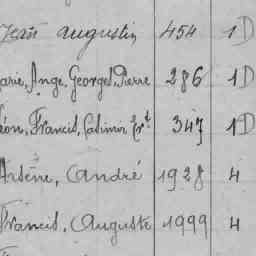 Jean Augustin 454 1D
arie, Ange, Georges, Pierre 286 1D
éon, Francis, Casimir 347 1D
Arsène, André 1928 4
Francis, Auguste 1999 4